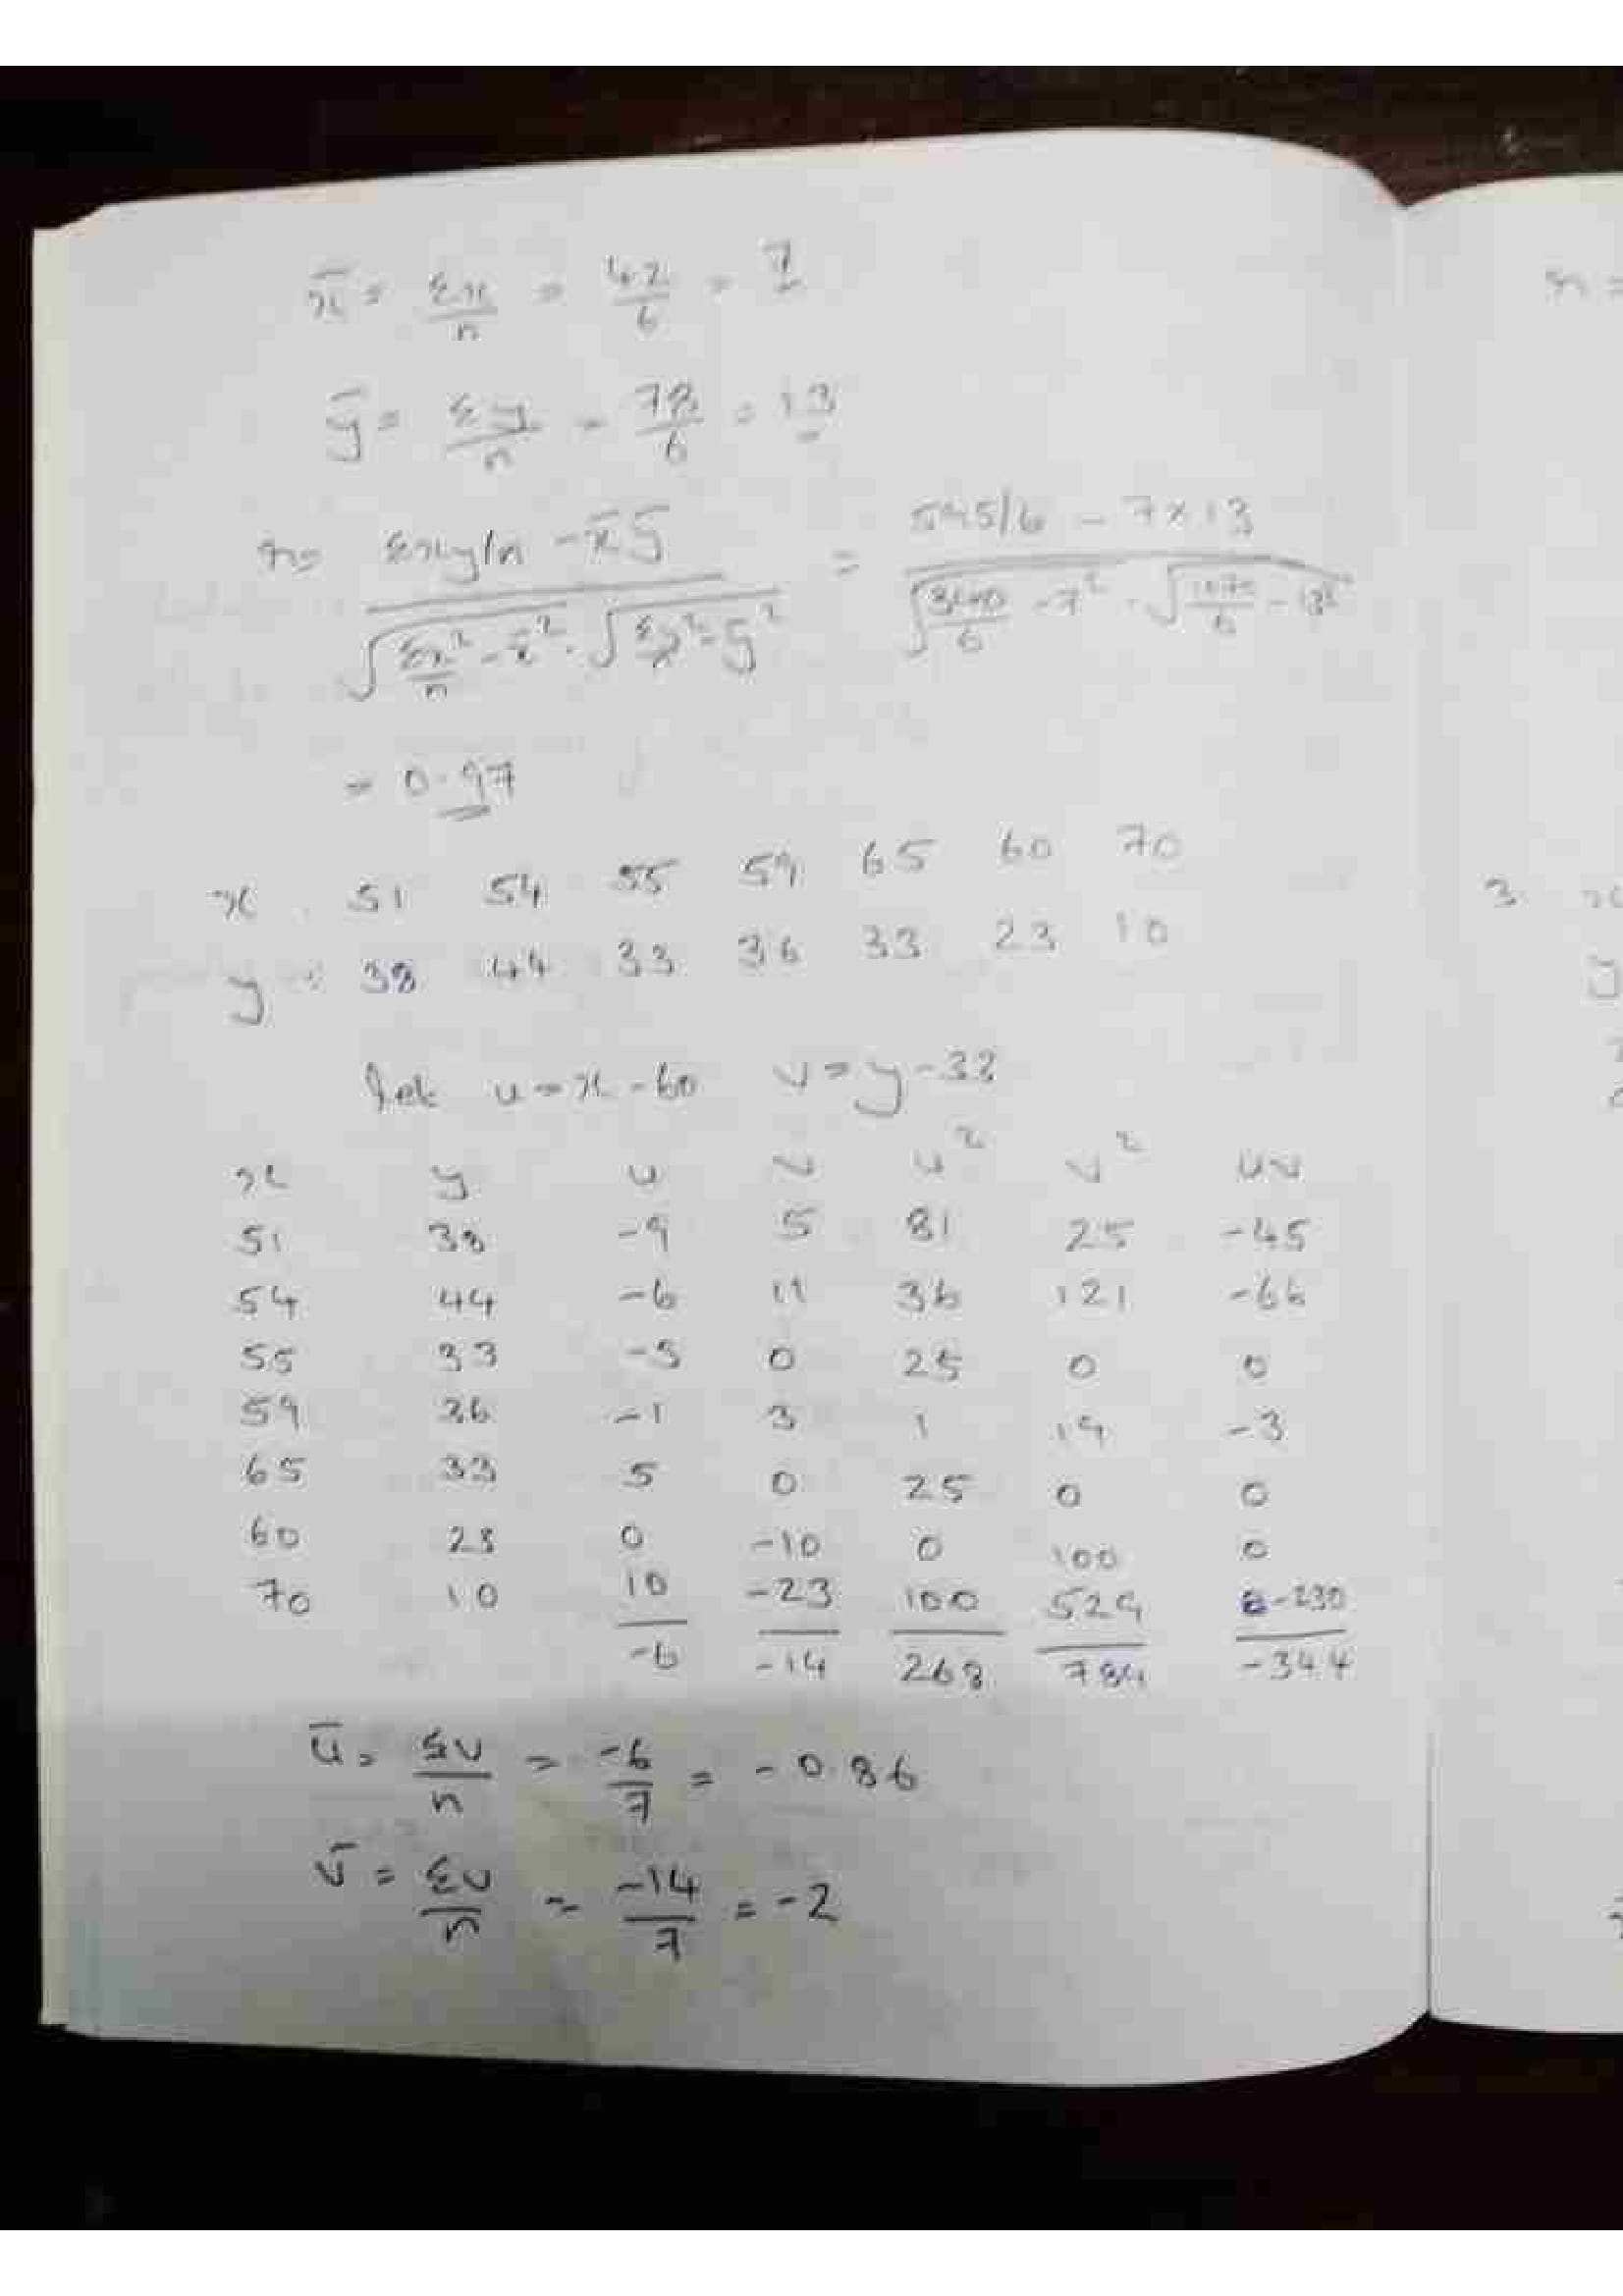 x̄ = Σx/n = 42/6 = 7
ȳ = Σy/n = 78/6 = 13
r = (Σxy/n - x̄ȳ) / (√(Σx²/n - x̄²) · √(Σy² - ȳ²)) = (545/6 - 7×13) / (√(/6 - 7²) · √(/6 - 13²))
= 0.97
x : 51 54 55 59 65 60 70
y : 38 44 33 36 33 23 10
let u = x - 60 v = y - 33
x y u v u² v² uv
51 38 -9 5 81 25 -45
54 44 -6 11 36 121 -66
55 33 -5 0 25 0 0
59 36 -1 3 1 19 -3
65 33 5 0 25 0 0
60 23 0 -10 0 100 0
70 10 10 -23 100 529 -230
-6 -14 268 784 -344
ū = Σu/n = -6/7 = -0.86
v̄ = Σv/n = -14/7 = -2
n =
3. x
y